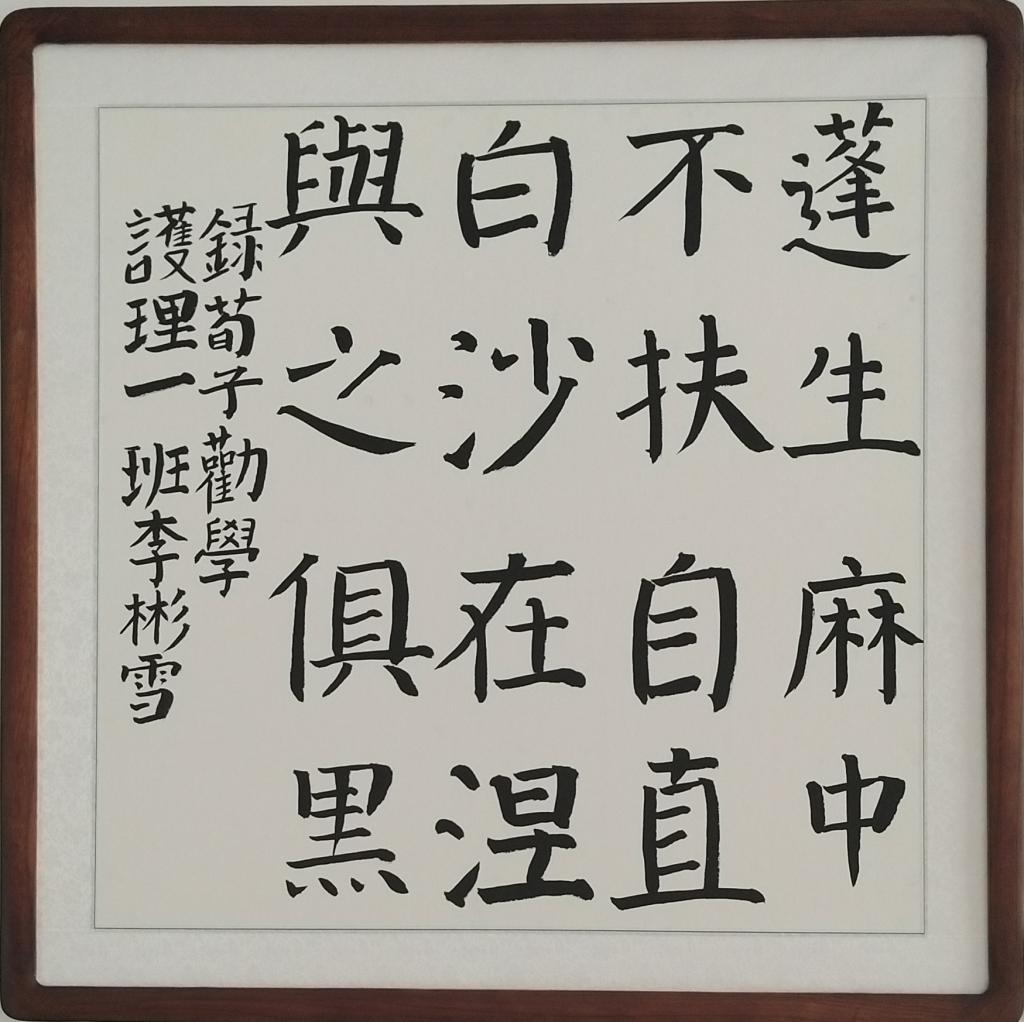 蓬生麻中
不扶自直
白沙在涅
與之俱黑
録荀子勸學
護理一班李彬雪